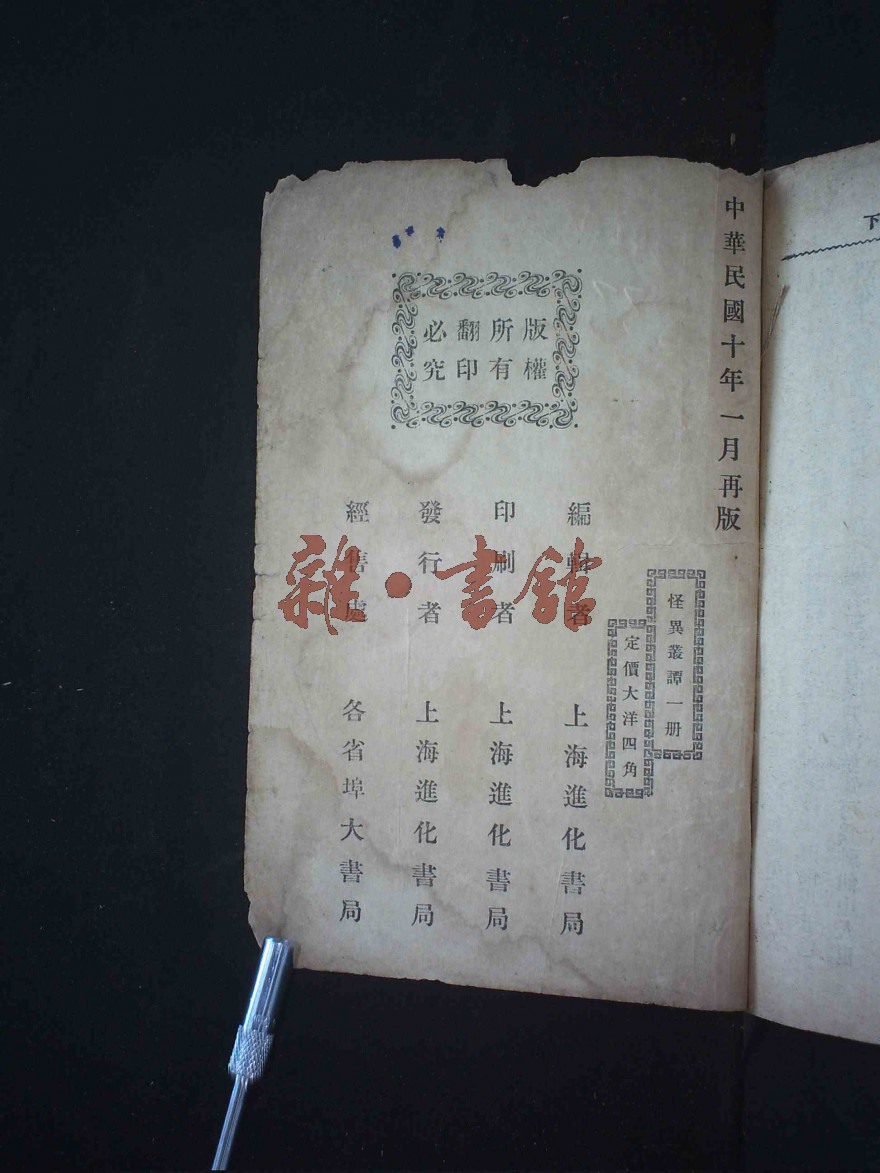 下
中華民國十年一月再版
怪異叢譚一册
定價大洋四角
版權
所有
翻印
必究
編輯者 上海進化書局
印刷者 上海進化書局
發行者 上海進化書局
經售處 各省埠大書局
雜·書館